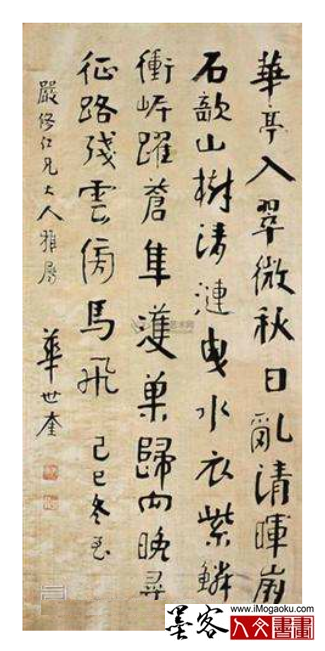 華亭入翠微秋日亂清暉崩
石欹山樹清漣曳水衣紫鱗
衝岸躍蒼隼護巢歸向晚尋
征路殘雲傍馬飛 己巳冬
嚴修仁兄大人雅屬
華世奎
墨客
www.iMogaoku.com
人文書畫